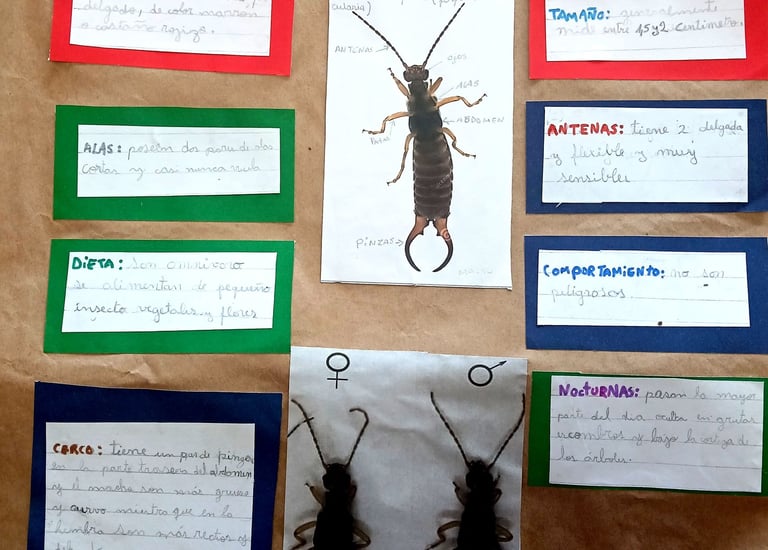 delgado, de color marrón
o castaño rojizo.
ALAS: poseen dos pares de alas
cortas y casi nunca vuela
DIETA: Son omnivoro
se alimentan de pequeño
insecto vegetales y flores
CERCO: tiene un par de pinzas
en la parte trasera del abdomen
y el macho son más gruesa
y curvo mientra que en la
hembra son más rectos y
cularia)
ANTENAS
OJOS
ALAS
ABDOMEN
Patas
PINZAS
♀
♂
TAMAÑO: generalmente
mide entre 1,5 y 2 centímetro.
ANTENAS: tiene 2 delgada
y flexible y muy
sensibles
COMPORTAMIENTO: no son
peligrosos.
NOCTURNAS: pasan la mayor
parte del dia oculta en grutas
escombros y bajo la corteza de
los árboles.